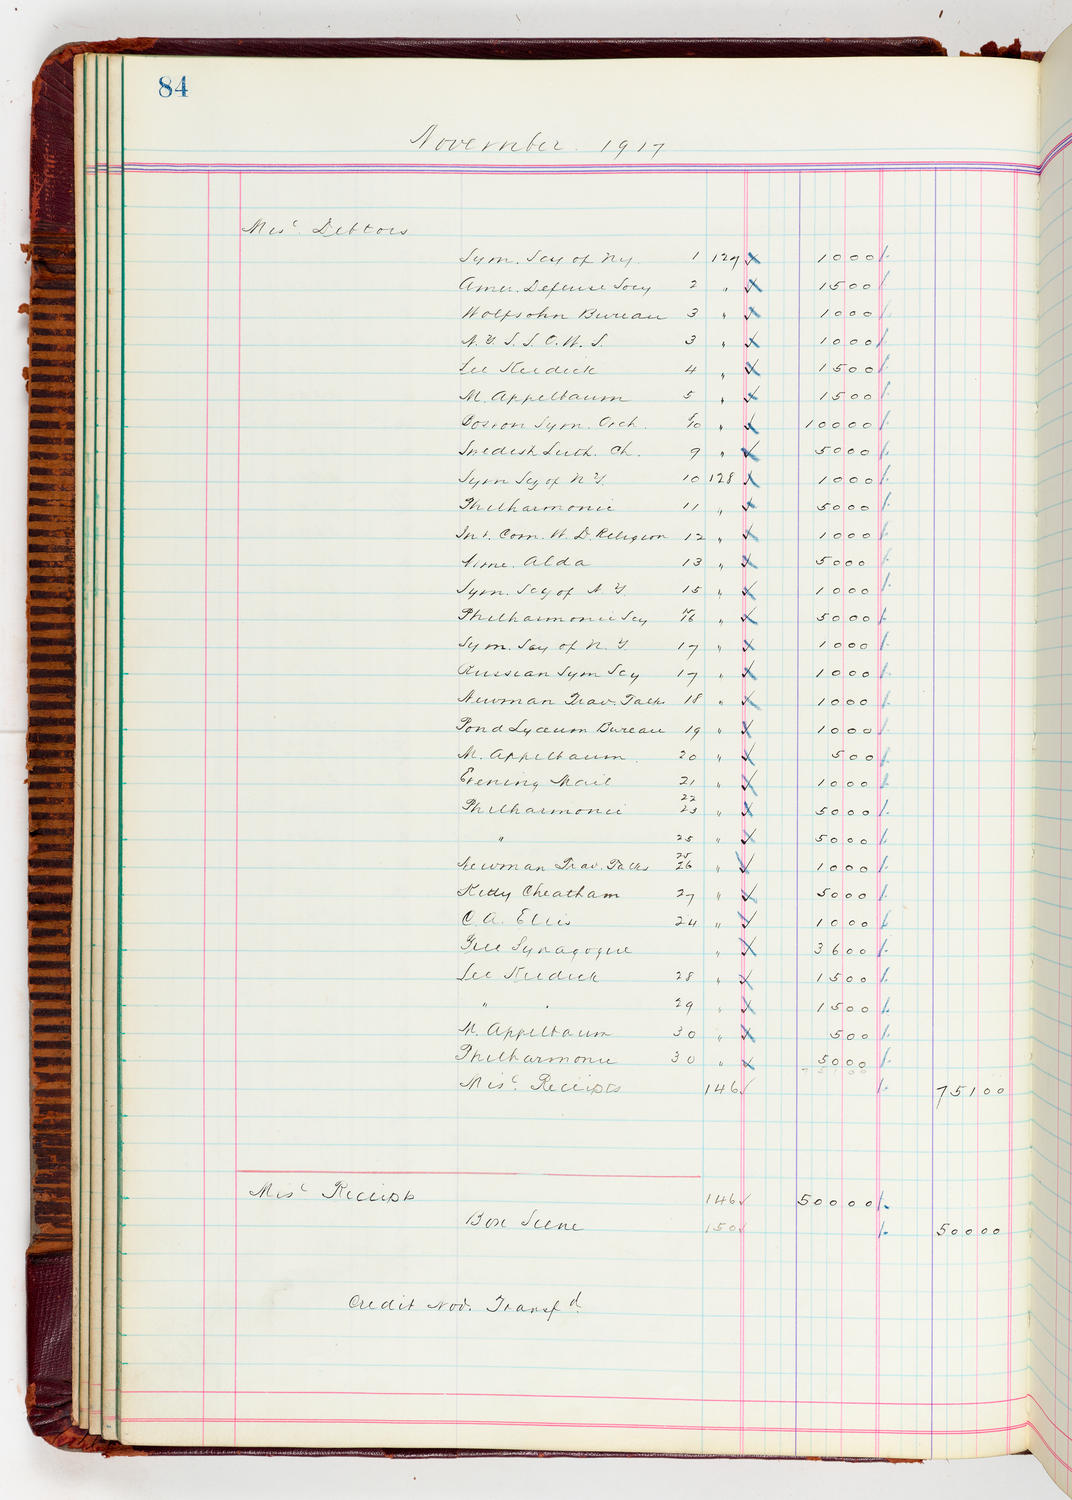 84
November. 1917
Misc. Debtors
Sym. Socy of Ny. 1 127 1000
Amer. Defense Socy 2 " 1500
Wolfsohn Bureau 3 " 1000
N.Y.S.S.O.W.S. 3 " 1000
Lee Keedick 4 " 1500
M. Appelbaum 5 " 1500
Boston Sym. Orch. 8/10 " 10000
Swedish Luth. Ch. 9 " 5000
Sym Scy of N.Y. 10 128 1000
Philharmonic 11 " 5000
Int. Com. W. D. Religion 12 " 1000
Mme. Alda 13 " 5000
Sym. Scy of N.Y. 15 " 1000
Philharmonic Scy 15/16 " 5000
Sym. Soy of N.Y. 17 " 1000
Russian Sym Scy 17 " 1000
Newman Trav. Talks 18 " 1000
Pond Lyceum Bureau 19 " 1000
M. Appelbaum. 20 " 500
Evening Mail 21 " 1000
Philharmonic 22/23 " 5000
" 25 " 5000
Newman Trav. Talks 25/26 " 1000
Kitty Cheatham 27 " 5000
C. A. Ellis 24 " 1000
Free Synagogue " 3600
Lee Keedick 28 " 1500
" 29 " 1500
M. Appelbaum 30 " 500
Philharmonic 30 " 5000
Misc. Receipts 146 75100
Misc Receipts 146 50000
Box Scene 150 50000
Credit Nov. Transfd.